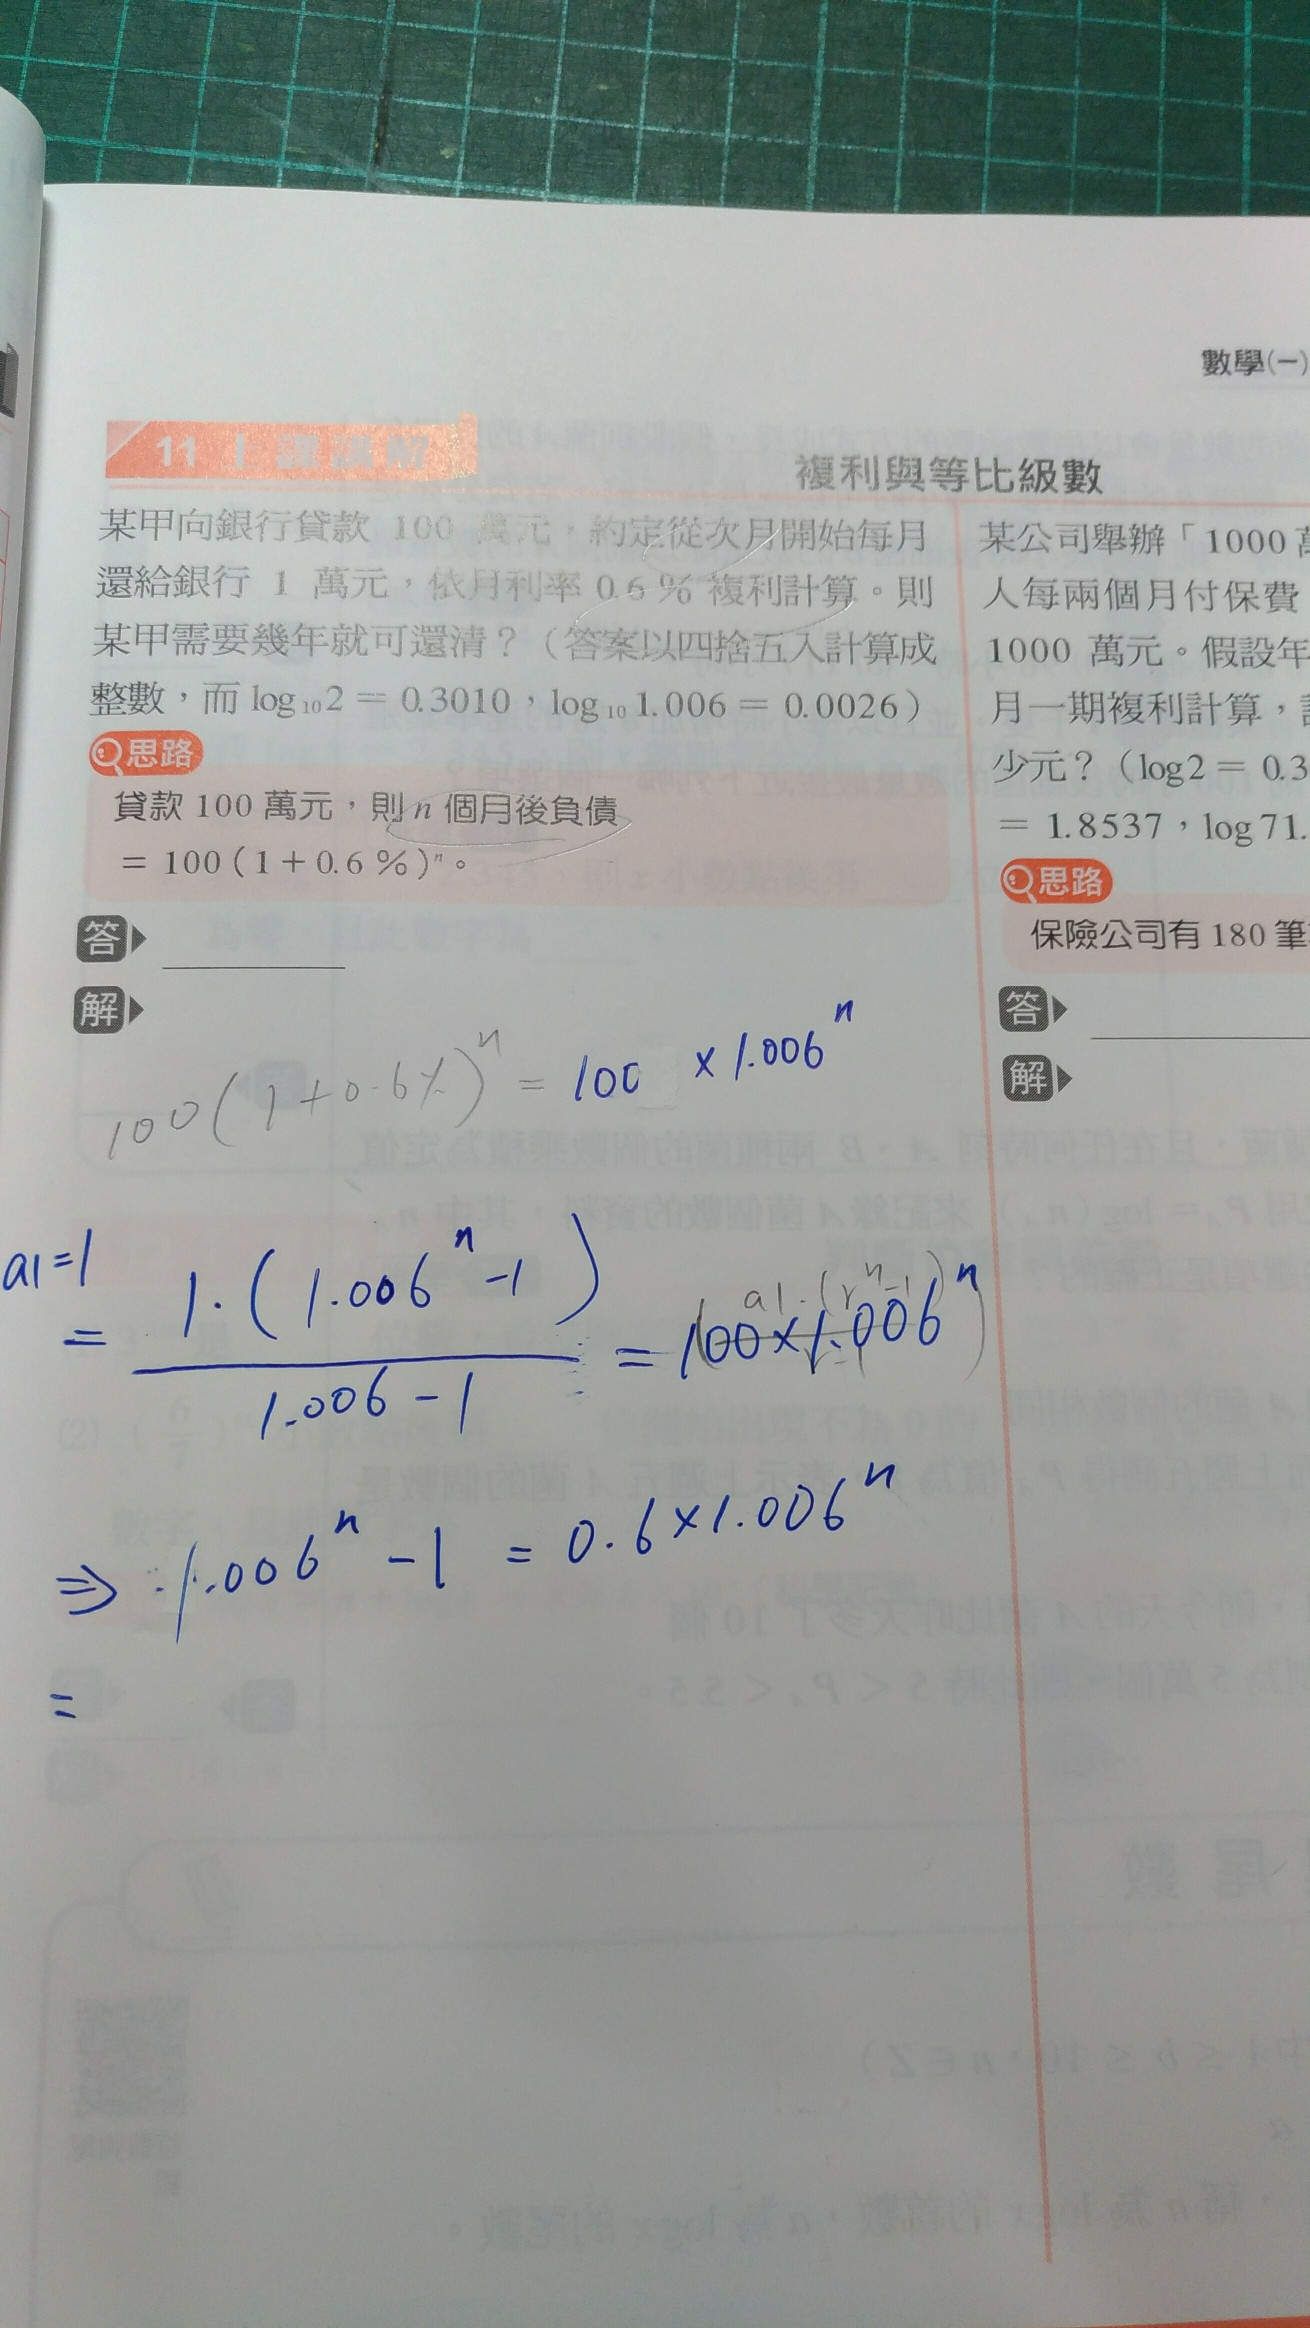 數學(一)
11 上課講解
複利與等比級數
某甲向銀行貸款 100 萬元，約定從次月開始每月
還給銀行 1 萬元，依月利率 0.6 % 複利計算。則
某甲需要幾年就可還清？（答案以四捨五入計算成
整數，而 log₁₀2 = 0.3010，log₁₀1.006 = 0.0026）
思路
貸款 100 萬元，則 n 個月後負債
= 100 ( 1 + 0.6 % )ⁿ。
答
解
100(1+0.6%)ⁿ = 100 × 1.006ⁿ
a1=1
= 1.(1.006ⁿ-1) / 1.006-1 = 100×1.006ⁿ
a1.(rⁿ-1)
⇒ 1.006ⁿ - 1 = 0.6×1.006ⁿ
=
某公司舉辦「1000 萬
人每兩個月付保費
1000 萬元。假設年
月一期複利計算，
少元？（log2 = 0.3
= 1.8537，log71.
思路
保險公司有 180 筆
答
解